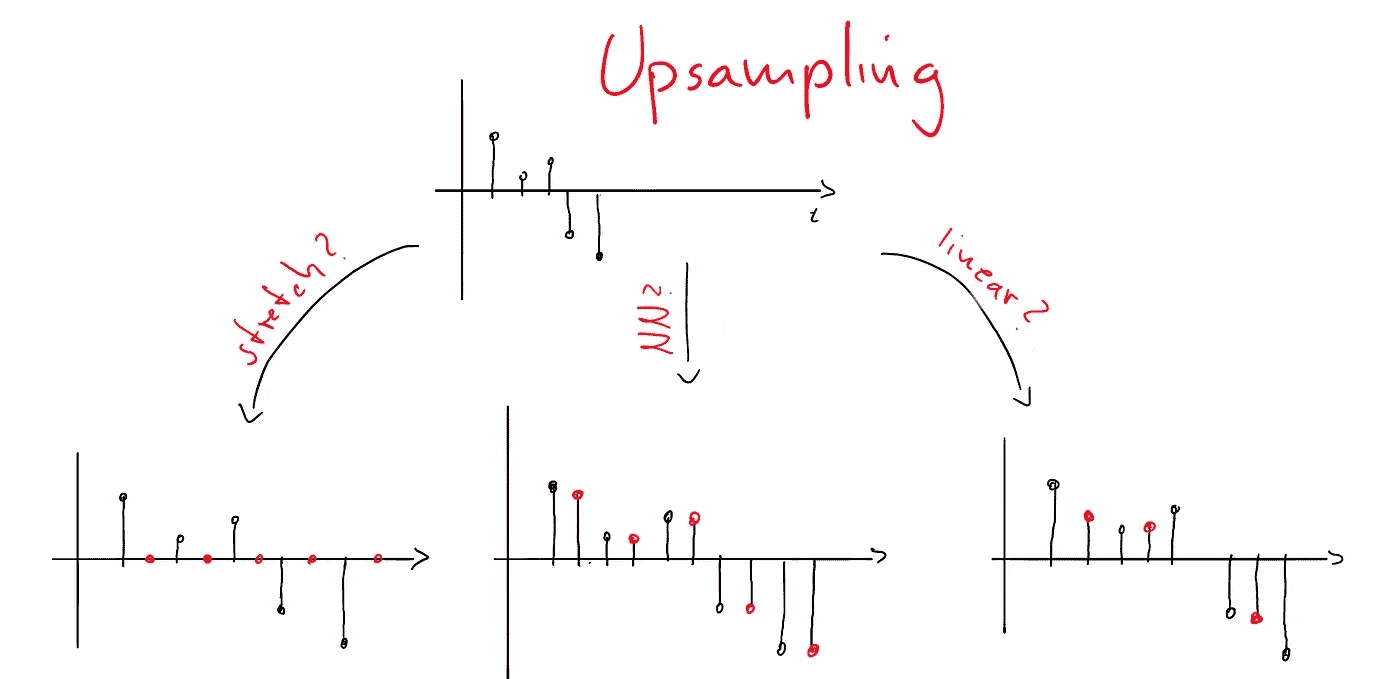 Upsampling
t
stretch?
NN?
linear?